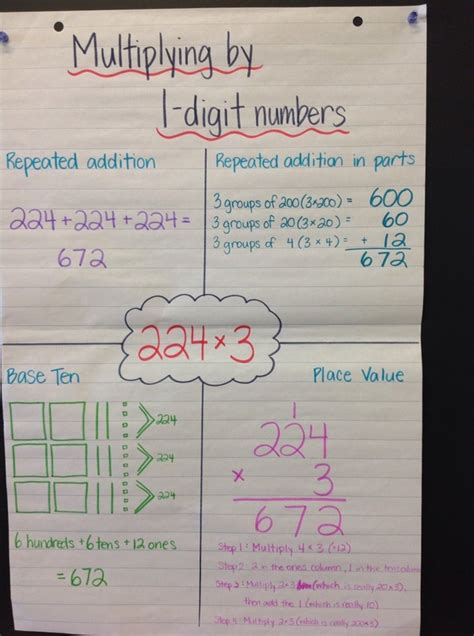 Multiplying by
1-digit numbers
Repeated addition
224 + 224 + 224 =
672
Repeated addition in parts
3 groups of 200 (3×200) = 600
3 groups of 20 (3×20) = 60
3 groups of 4 (3×4) = + 12
672
224 × 3
Base Ten
224
224
224
6 hundreds + 6 tens + 12 ones
= 672
Place Value
1
224
× 3
672
Step 1: Multiply 4×3 (=12)
Step 2: 2 in the ones column, 1 in the tens column
Step 3: Multiply 2×3 (which is really 20×3),
then add the 1 (which is really 10)
Step 4: Multiply 2×3 (which is really 200×3)